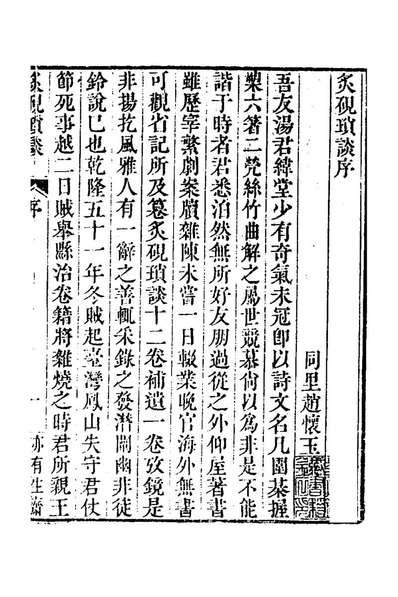 炙硯瑣談序
同里趙懷玉
吾友湯君緯堂少有奇氣未冠卽以詩文名凡圍棊握
槊六箸二㷀絲竹曲解之屬世競慕尙以爲非是不能
諧于時者君悉泊然無所好友朋過從之外仰屋著書
雖歷宰繁劇案牘雜陳未嘗一日輟業晚官海外無書
可觀省記所及篹炙硯瑣談十二卷補遺一卷攷鏡是
非揚扢風雅人有一辭之善輒采錄之發潛闡幽非徒
鈴說已也乾隆五十一年冬賊起臺灣鳳山失守君仗
節死事越二日賊舉縣治卷籍將雜燒之時君所親王
炙硯瑣談
序
一
亦有生齋